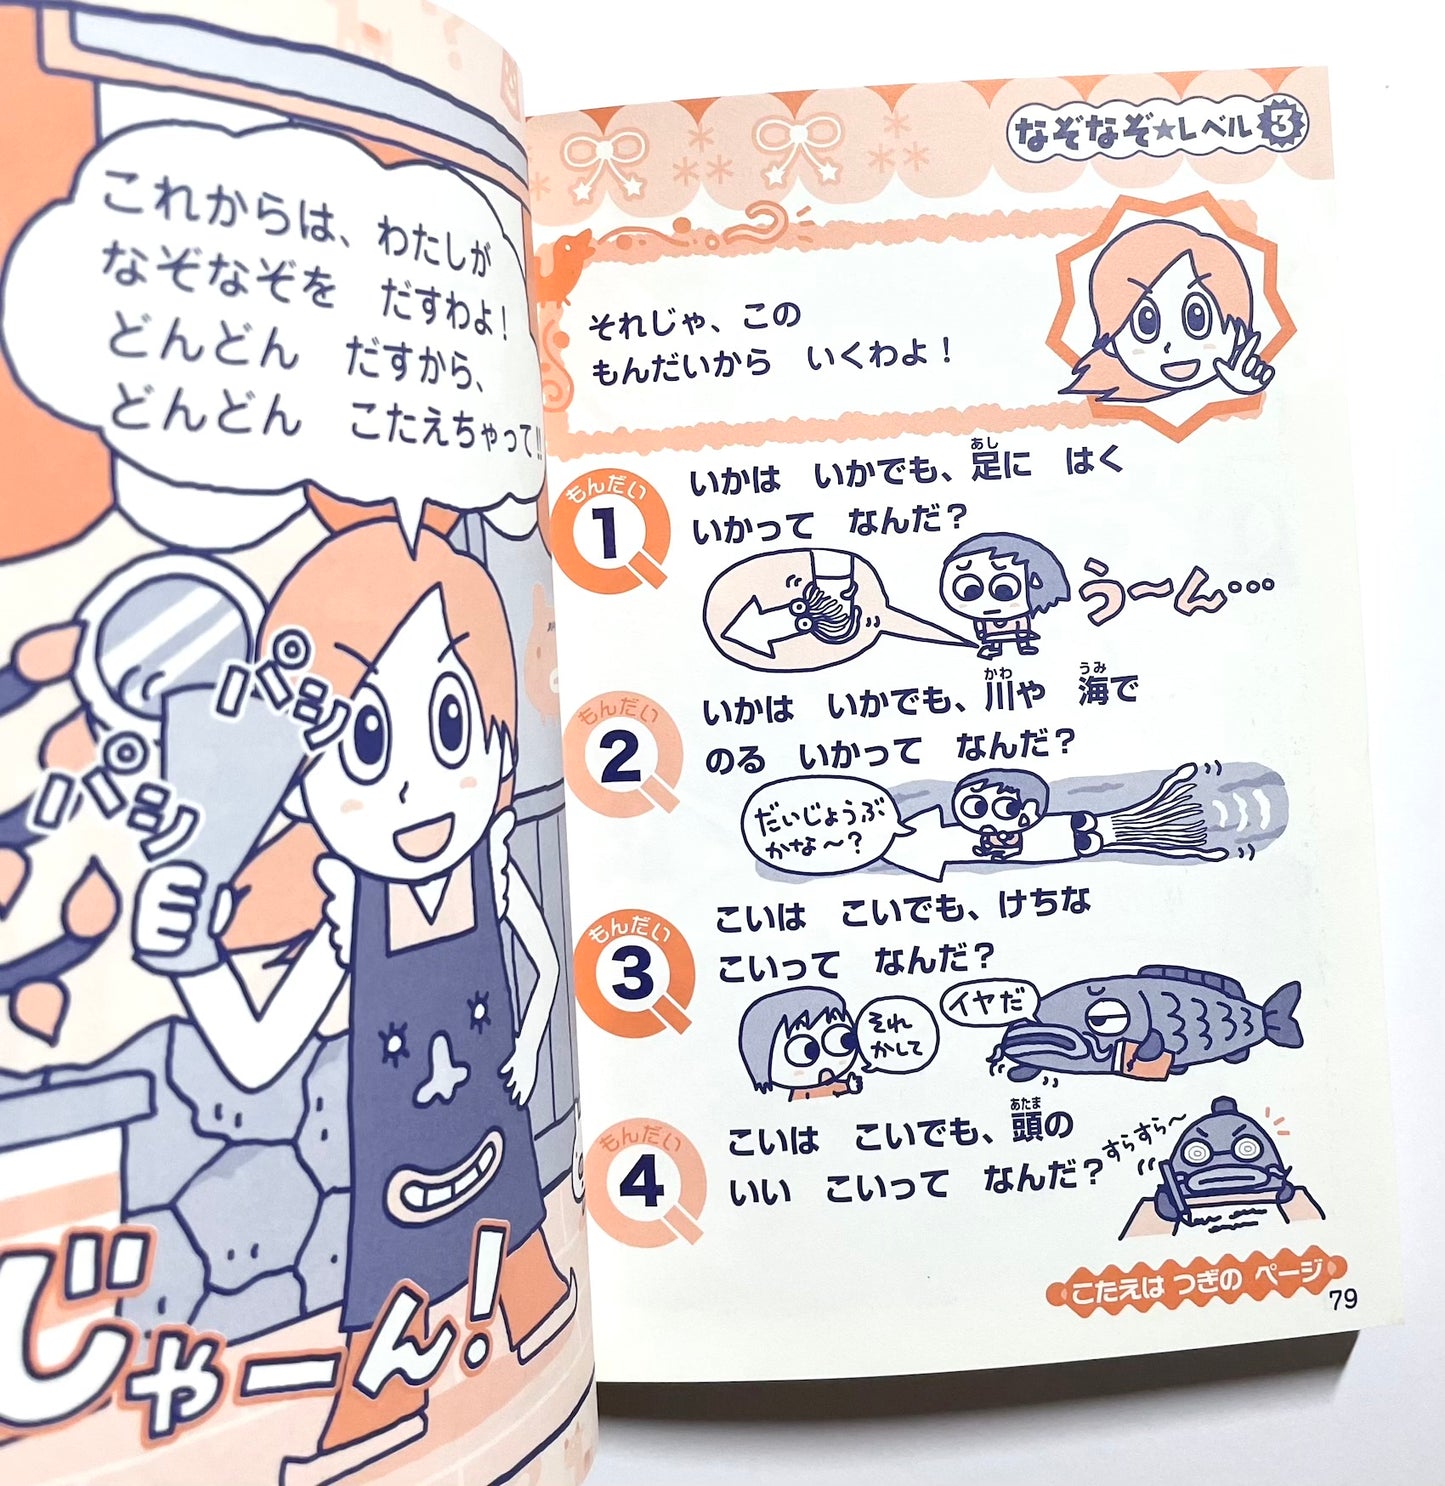 これからは、わたしが
なぞなぞを　だすわよ！
どんどん　だすから、
どんどん　こたえちゃって!!
パシ
パシ
じゃーん！
なぞなぞ★レベル3
それじゃ、この
もんだいから　いくわよ！
もんだい
1
いかは　いかでも、足に　はく
あし
いかって　なんだ？
うーん…
もんだい
2
いかは　いかでも、川や　海で
かわ　うみ
のる　いかって　なんだ？
だいじょうぶ
かな〜？
もんだい
3
こいは　こいでも、けちな
こいって　なんだ？
それ
かして
イヤだ
もんだい
4
こいは　こいでも、頭の
あたま
いい　こいって　なんだ？
すらすら〜
こたえは つぎの ページ
79